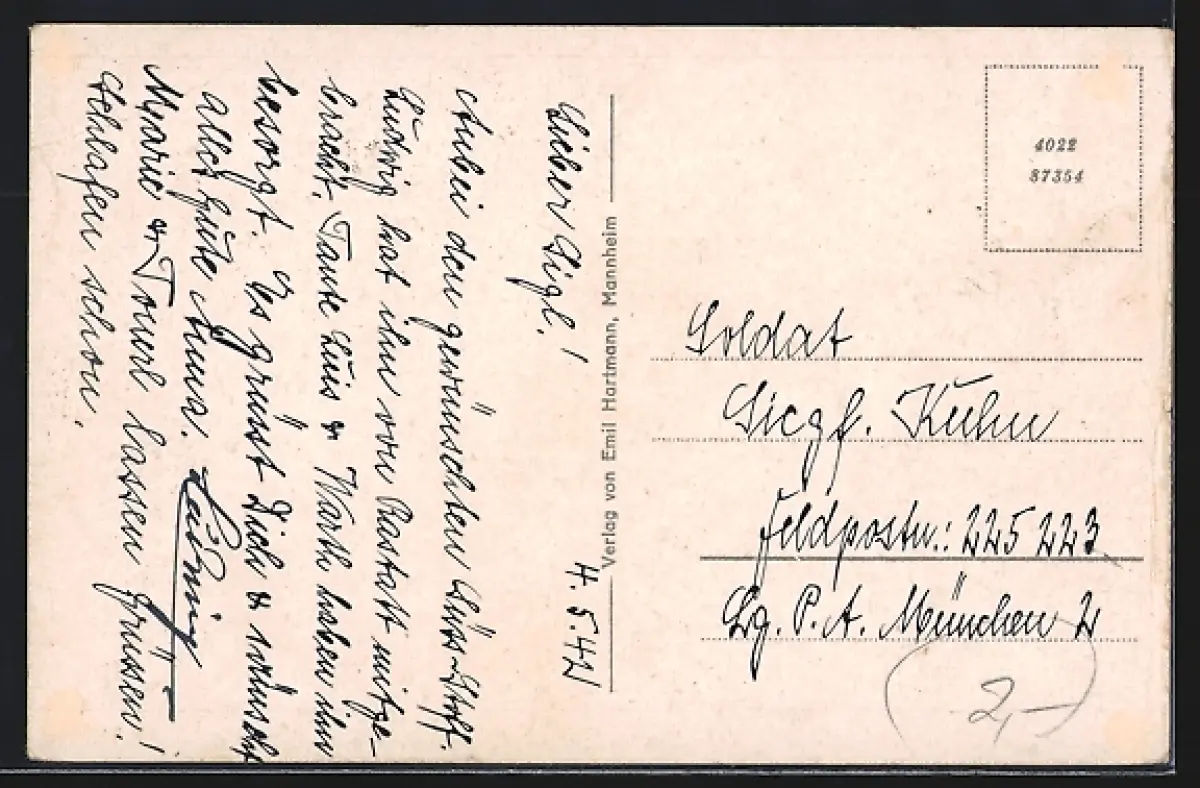 4. 5. 42
Lieber Sigl!
Anbei den gewünschten Süss-Stoff.
Ludwig hat ihn von Rastatt mitge-
bracht. Tante Luis & Warth haben ihn
besorgt. Es grüsst Dich & wünscht
alles gute Anna. Ludwig
Marie & Tourl lassen grüssen!
Schlafen schon.
Verlag von Emil Hartmann, Mannheim
4022
87354
Soldat
Siegf. Kuhn
Feldpostn.: L25 223
Lg. P. A. München 2
2,-